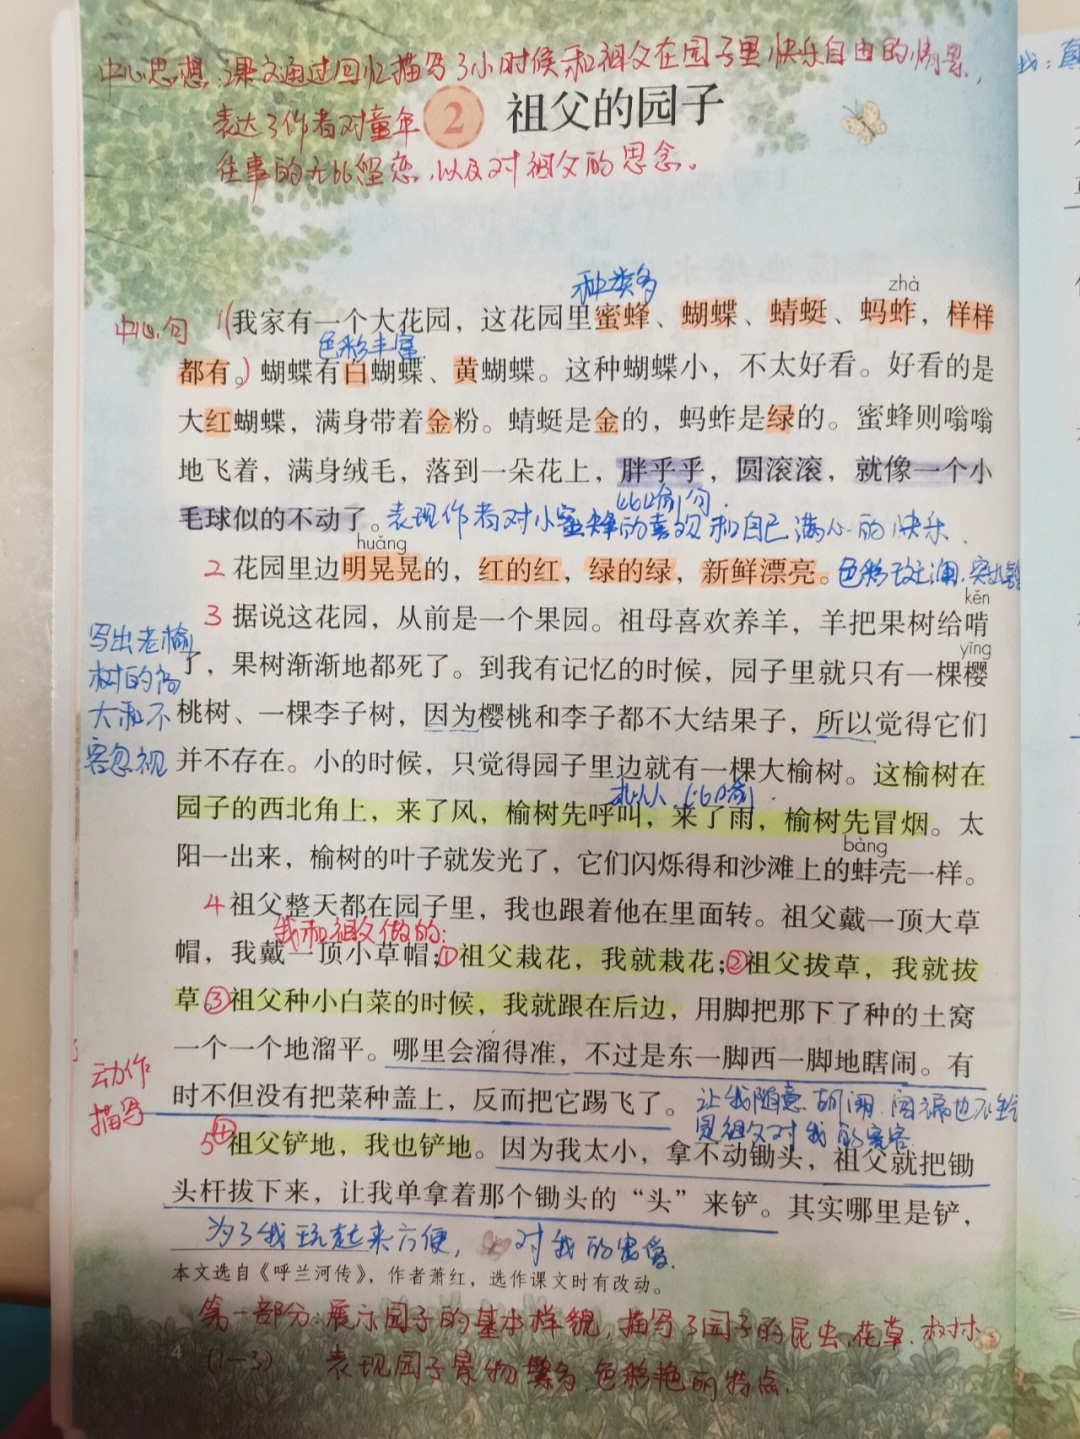 中心思想:课文通过回忆描写了小时候和祖父在园子里快乐自由的情景,
表达了作者对童年
往事的无比留恋,以及对祖父的思念。
2 祖父的园子
种类多
zhà
中心句
1(我家有一个大花园，这花园里蜜蜂、蝴蝶、蜻蜓、蚂蚱，样样
色彩丰富
都有。)蝴蝶有白蝴蝶、黄蝴蝶。这种蝴蝶小，不太好看。好看的是
大红蝴蝶，满身带着金粉。蜻蜓是金的，蚂蚱是绿的。蜜蜂则嗡嗡
地飞着，满身绒毛，落到一朵花上，胖乎乎，圆滚滚，就像一个小
比喻句
毛球似的不动了。表现作者对小蜜蜂的喜欢和自己满心的快乐.
huǎng
2 花园里边明晃晃的，红的红，绿的绿，新鲜漂亮。色彩斑斓.
kěn
3 据说这花园，从前是一个果园。祖母喜欢养羊，羊把果树给啃
yīng
了，果树渐渐地都死了。到我有记忆的时候，园子里就只有一棵樱
桃树、一棵李子树，因为樱桃和李子都不大结果子，所以觉得它们
并不存在。小的时候，只觉得园子里边就有一棵大榆树。这榆树在
写出老榆
树的高
大和不
容忽视
拟人 比喻
园子的西北角上，来了风，榆树先呼叫，来了雨，榆树先冒烟。太
bàng
阳一出来，榆树的叶子就发光了，它们闪烁得和沙滩上的蚌壳一样。
4 祖父整天都在园子里，我也跟着他在里面转。祖父戴一顶大草
我和祖父做的:
帽，我戴一顶小草帽；①祖父栽花，我就栽花；②祖父拔草，我就拔
草③祖父种小白菜的时候，我就跟在后边，用脚把那下了种的土窝
一个一个地溜平。哪里会溜得准，不过是东一脚西一脚地瞎闹。有
时不但没有把菜种盖上，反而把它踢飞了。
动作
描写
让我随意胡闹
祖父对我的宽容
5④祖父铲地，我也铲地。因为我太小，拿不动锄头，祖父就把锄
头杆拔下来，让我单拿着那个锄头的“头”来铲。其实哪里是铲，
为了我玩起来方便, 对我的宠爱.
本文选自《呼兰河传》，作者萧红，选作课文时有改动。
第一部分:展示园子的基本样貌,描写了园子的昆虫.花草.树木
(1-3) 表现园子景物繁多.色彩艳丽特点.
4